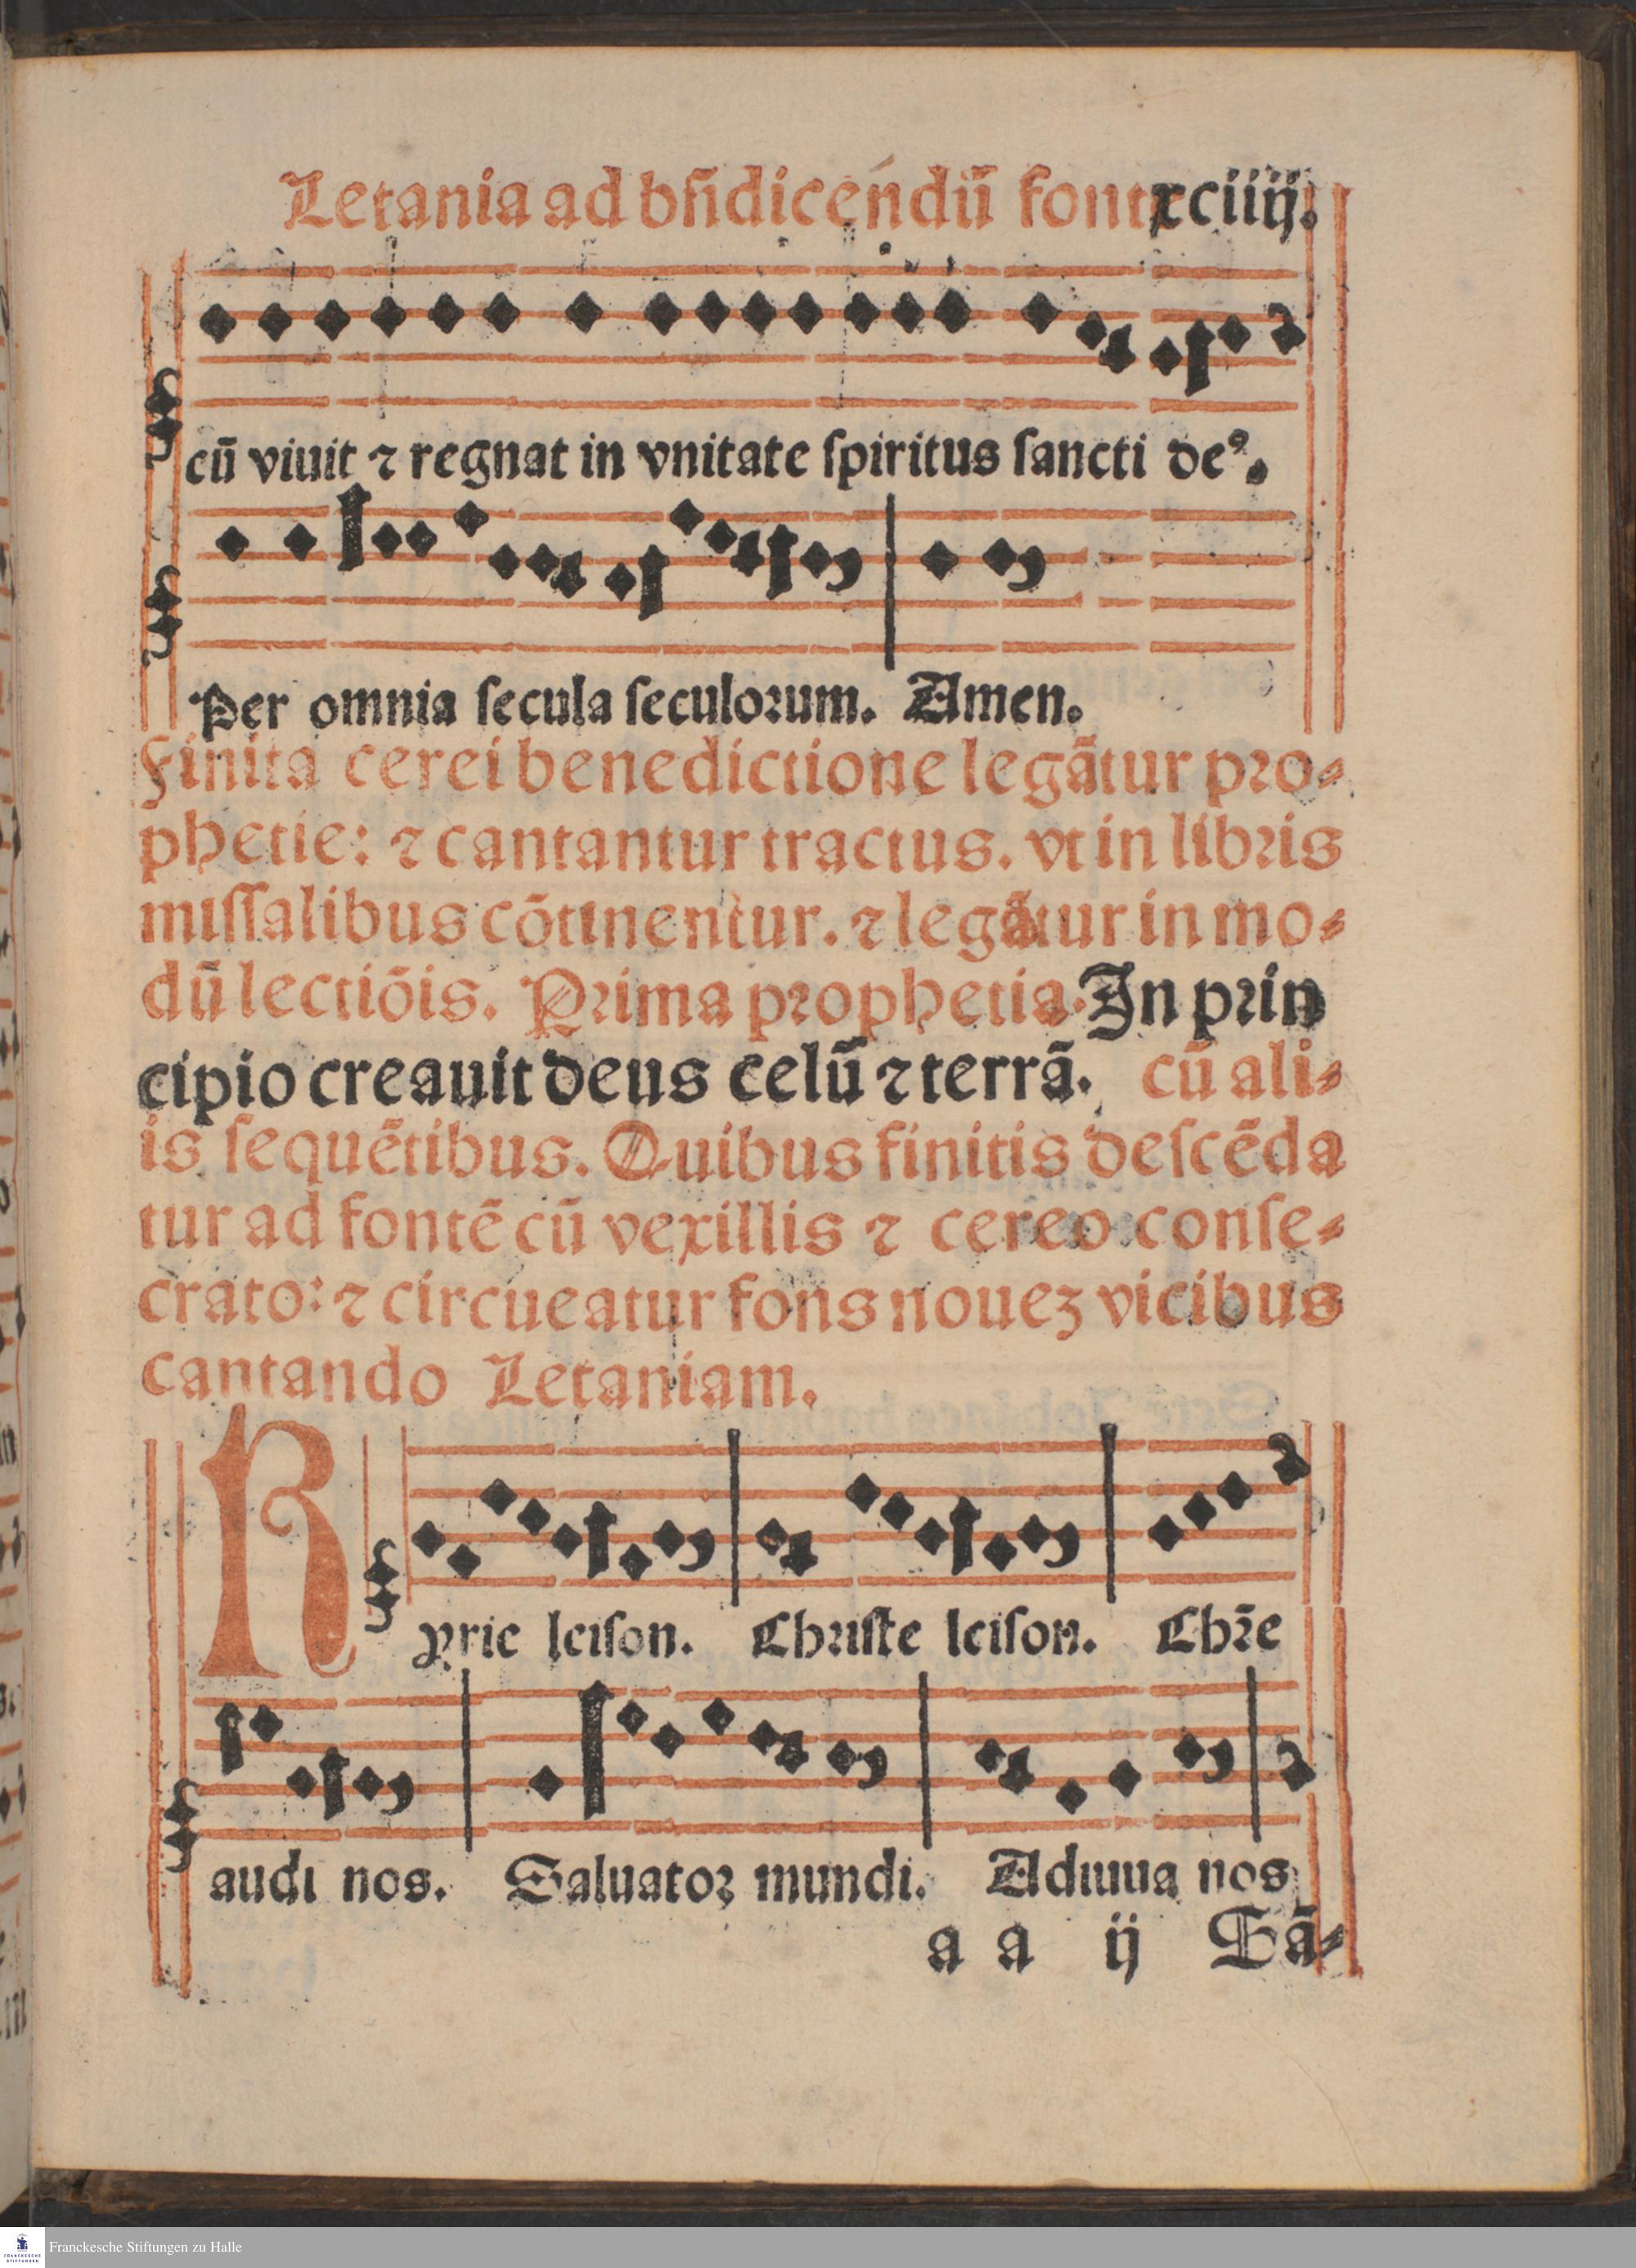 Letania ad bn̄dicendū fontē xciiij.
cū viuit ⁊ regnat in vnitate ſpiritus ſancti deꝰ.
Per omnia ſecula ſeculoꝛum. Amen.
Finita cerei benedictione legātur pꝛo⸗
phetie: ⁊ cantantur tractus. vt in libꝛis
miſſalibus cōtinentur. ⁊ legātur in mo⸗
dū lectiōis. Pꝛima pꝛophetia. In pꝛin
cipio creauit deus celū ⁊ terrā. cū ali⸗
is ſequētibus. Quibus finitis deſcēda
tur ad fontē cū vexillis ⁊ cereo conſe⸗
crato: ⁊ circueatur fons noueꝫ vicibus
cantando Letaniam.
Kyrie leiſon. Chꝛiſte leiſon. Chꝛ̄e
audi nos. Saluatoꝛ mundi. Adiuua nos
a a ij Sā⸗
Franckesche Stiftungen zu Halle